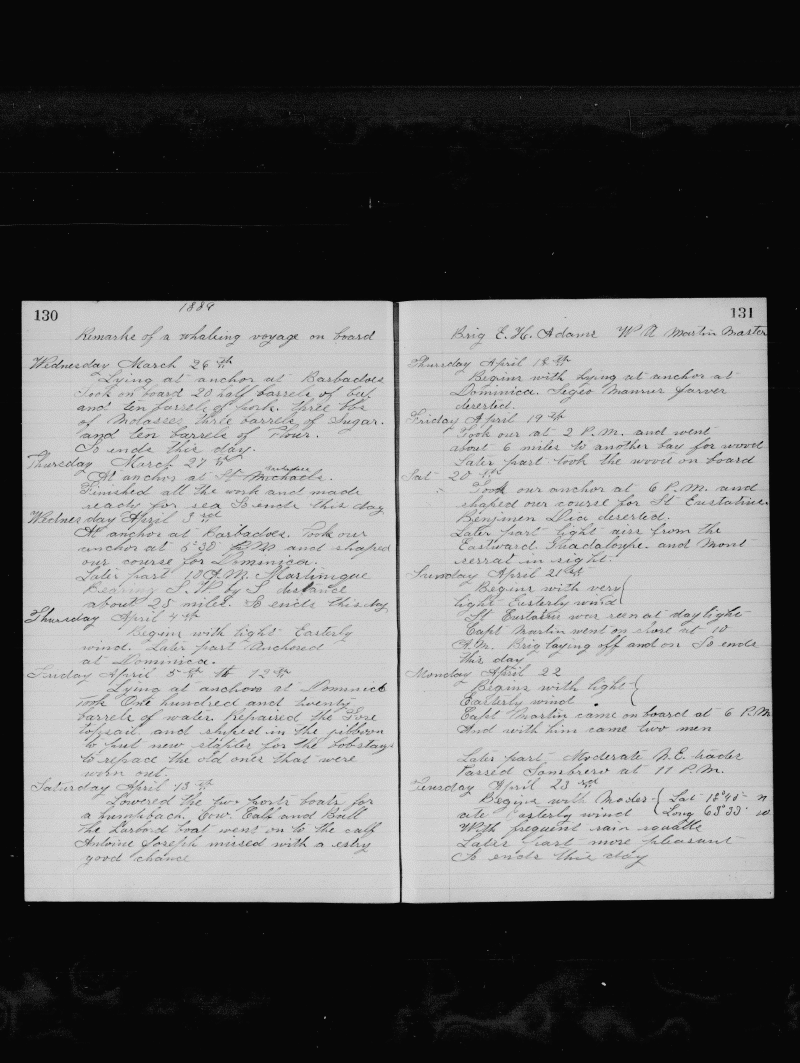 130
1889
Remarks of a whaling voyage on board
Wednesday March 26th
Lying at anchor at Barbadoes
Took on board 20 half barrels of beef
and ten barrels of Pork. three bbr
of Molasses three barrels of Sugar.
and ten barrels of Flour.
So ends this day.
Thursday March 27th
At anchor at St Michaels.
Finished all the work and made
ready for sea So ends this day
Wednesday April 3rd
At anchor at Barbadoes. Took our
anchor at 5'30 P.M and shaped
our course for Dominica.
Later part 10 Martinique
Bearing S.W. by S distance
about 25 miles. So ends this day
Thursday April 4th
Begins with light Easterly
wind. Later part Anchored
at Dominica.
Friday April 5th to 12th
Lying at anchor at Dominica
took One hundred and twenty
barrels of water. Repaired the Fore
topsail, and shiped in the jibboom
to put new staples for the bobstays
to repace the old ones that were
worn out.
Saturday April 13th
Lowered the two boats for
a humpback Cow. Calf and Bull
The Larbord boat went on to the calf
Antoine Joseph missed with a
good chance
131
Brig E. H. Adams W A Martin Master
Thursday April 18th
Begins with lying at anchor at
Dominica.
deserted.
Friday April 19th
Took our at 2 P.M. and went
about 6 miles to another bay for wood
Later part took the wood on board
Sat 20th
Took our anchor at 6 P.M. and
shaped our course for St Eustatius.
Benjmen Dia deserted.
Later part light airs from the
Eastward. Guadaloupe. and Mont
serrat in sight.
Sunday April 21st
Begins with very
light Easterly wind
St Eustatius was seen at daylight
Capt Martin went on shore at 10
A.M. Brig laying off and on So ends
this day
Monday April 22
Begins with light
Easterly wind
Capt Martin came on board at 6 P.M
And with him came two men
Later part Moderate N.E. trades
Passed Sombrero at 11 P.M.
Tuesday April 23
Begins with Moder- Lat 18°45 n
ate Easterly wind Long 63°33' w
With frequent rain squalls
Later part more pleasant
So ends this day